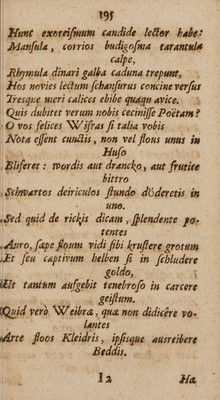 195
Hunc exoreismum candide lector habe:
Mansula, corrios budigosma tarantula
calpe,
Rhymula dinari galba caduna trepunt,
Hos novies lectum schansurus concine versus
Tresque meri calices ebibe quaqu avice.
Quis dubitet verum nobis cecinisse Poëtam?
O vos felices Wistas si talia vobis
Nota essent cunctis, non vel flous unus in
Huso
Bliferet: wordis aut drancko, aut frutice
bittro
Schwartos deiriculos stundo döderetis in
uno.
Sed quid de rickis dicam, splendente po-
tentes
Auro, sæpe stoum vidi sibi krustere grotum
Et seu captivum helben si in schludere
goldo,
Ut tantum aufgebit tenebroso in carcere
geistum.
Quid verò Weibræ, quæ non didicêre vo-
lantes
Arte floos Kleidris, ipsisque ausreibere
Beddis.
I 2 Ha